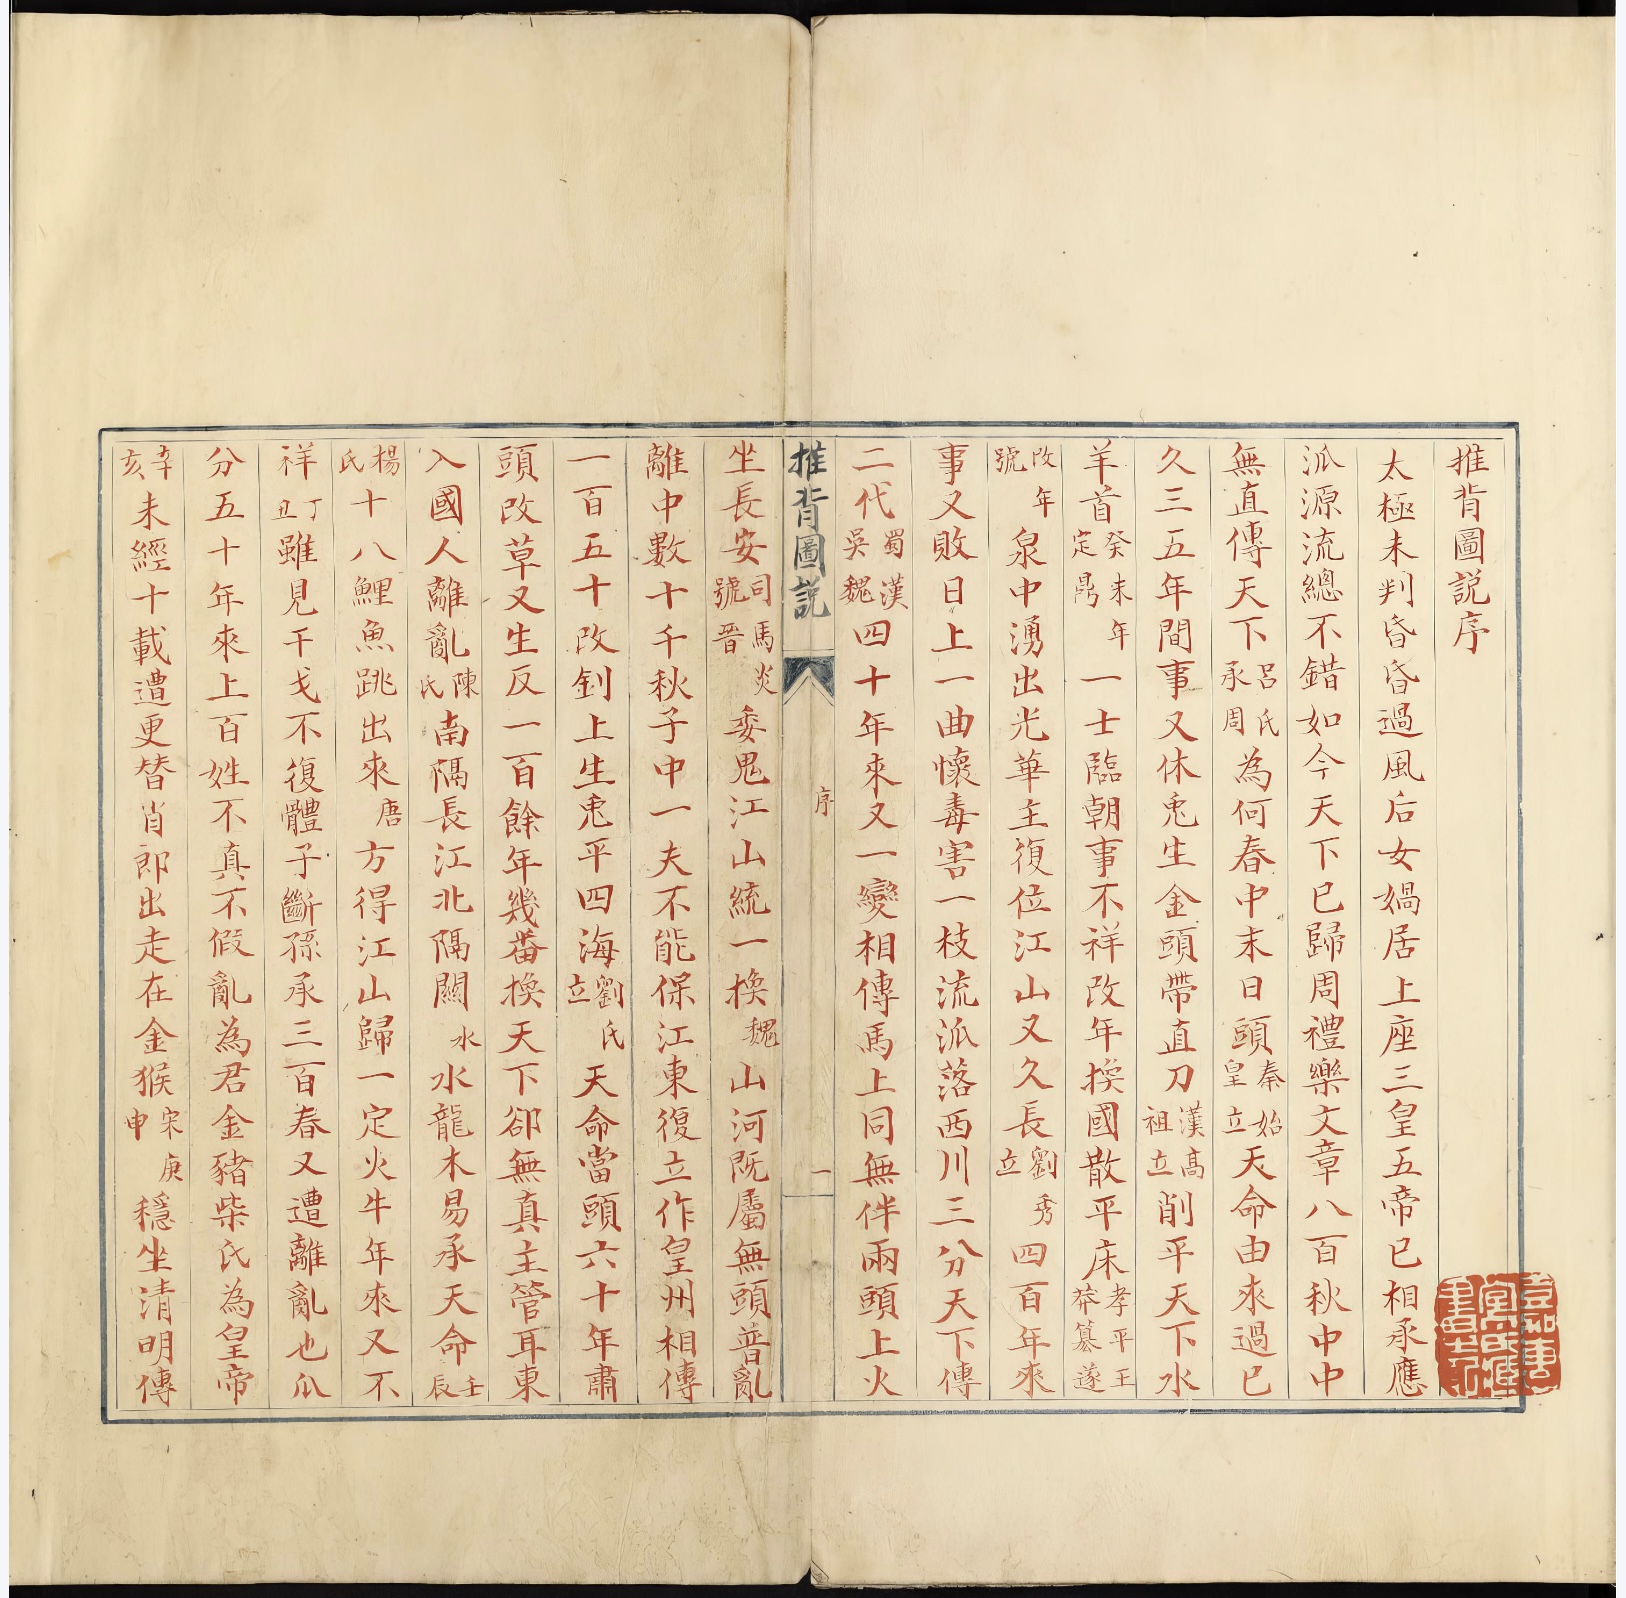 推背圖説序
太極未判昏昏過風后女媧居上座三皇五帝已相承應
派源流總不錯如今天下已歸周禮樂文章八百秋中中
無直傳天下呂氏承周為何春中末日頭秦始皇立天命由來過已
久三五年間事又休兎生金頭帶直刀漢高祖立削平天下水
羊首癸未年定鼎一士臨朝事不祥改年換國散平床孝平王莽篡遂
改年號泉中湧出光華主復位江山又久長劉秀立四百年來
事又敗日上一曲懷毒害一枝流派落西川三分天下傳
二代蜀漢吳魏四十年來又一變相傳馬上同無伴兩頭上火
推背圖説
序
一
坐長安司馬炎號晋委鬼江山統一換魏山河既屬無頭普亂
離中數十千秋子中一夫不能保江東復立作皇州相傳
一百五十改釗上生兎平四海劉氏立天命當頭六十年肅
頭改草又生反一百餘年幾番換天下卻無真主管耳東
入國人離亂陳氏南隔長江北隔關水水龍木易承天命壬辰
楊氏十八鯉魚跳出來唐方得江山歸一定火牛年來又不
祥丁丑雖見干戈不復體子斷孫承三百春又遭離亂也瓜
分五十年來上百姓不真不假亂為君金豬柴氏為皇帝
辛亥未經十載遭更替肖郎出走在金猴宋庚申穩坐清明傳